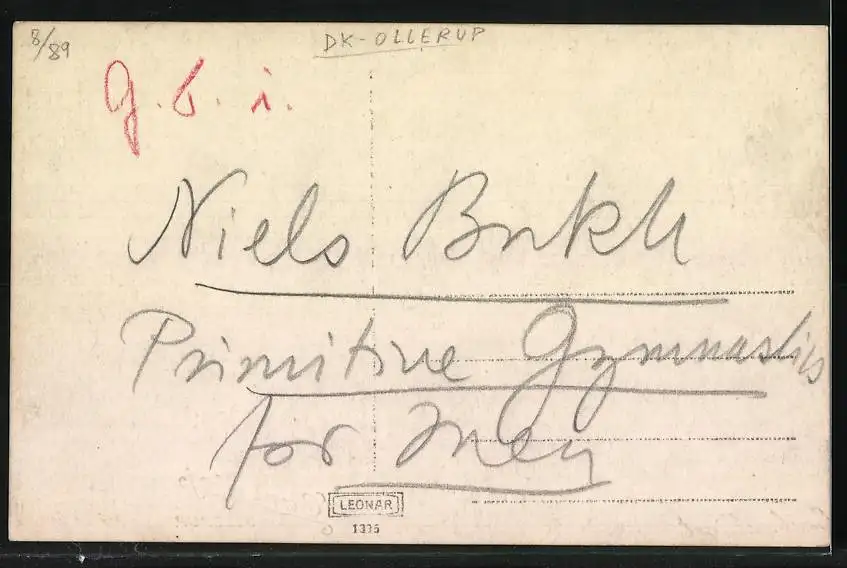 8/89
DK-OLLERUP
g. b. i.
Niels Bukh
Primitive Gymnastics
for men
LEONAR
1335